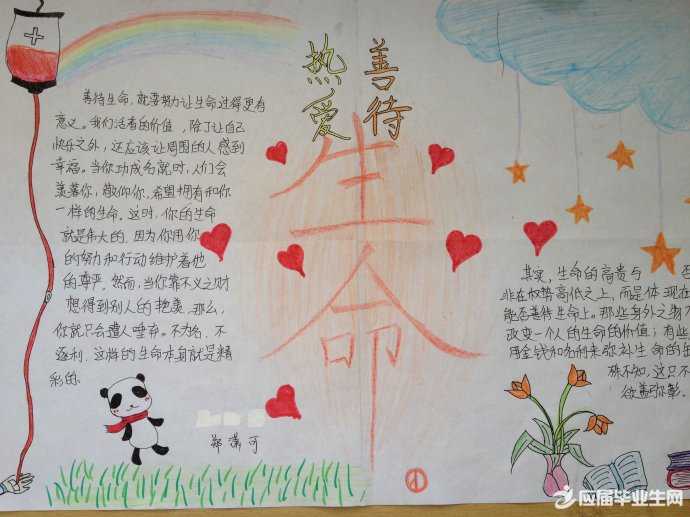 热爱
善待
生命
善待生命,就要努力让生命过得更有
意义。我们活着的价值,除了让自己
快乐之外,还应该让周围的人感到
幸福。当你功成名就时,人们会
羡慕你,敬仰你,希望拥有和你
一样的生命。这时,你的生命
就是伟大的,因为你用你
的努力和行动维护着他
的尊严。然而,当你靠不义之财
想得到别人的抱羡,那么,
你就只会遭人唾弃。不为名,不
逐利,这样的生命本身就是精
彩的。
郑 可
其实,生命的高贵与否
非在权势高低之上,而是体现在
能否善待生命上。那些身外之物
改变一个人的生命的价值;有些
用金钱和名利来弥补生命的
殊不知,这只不
欲盖弥彰。
①
应届毕业生网